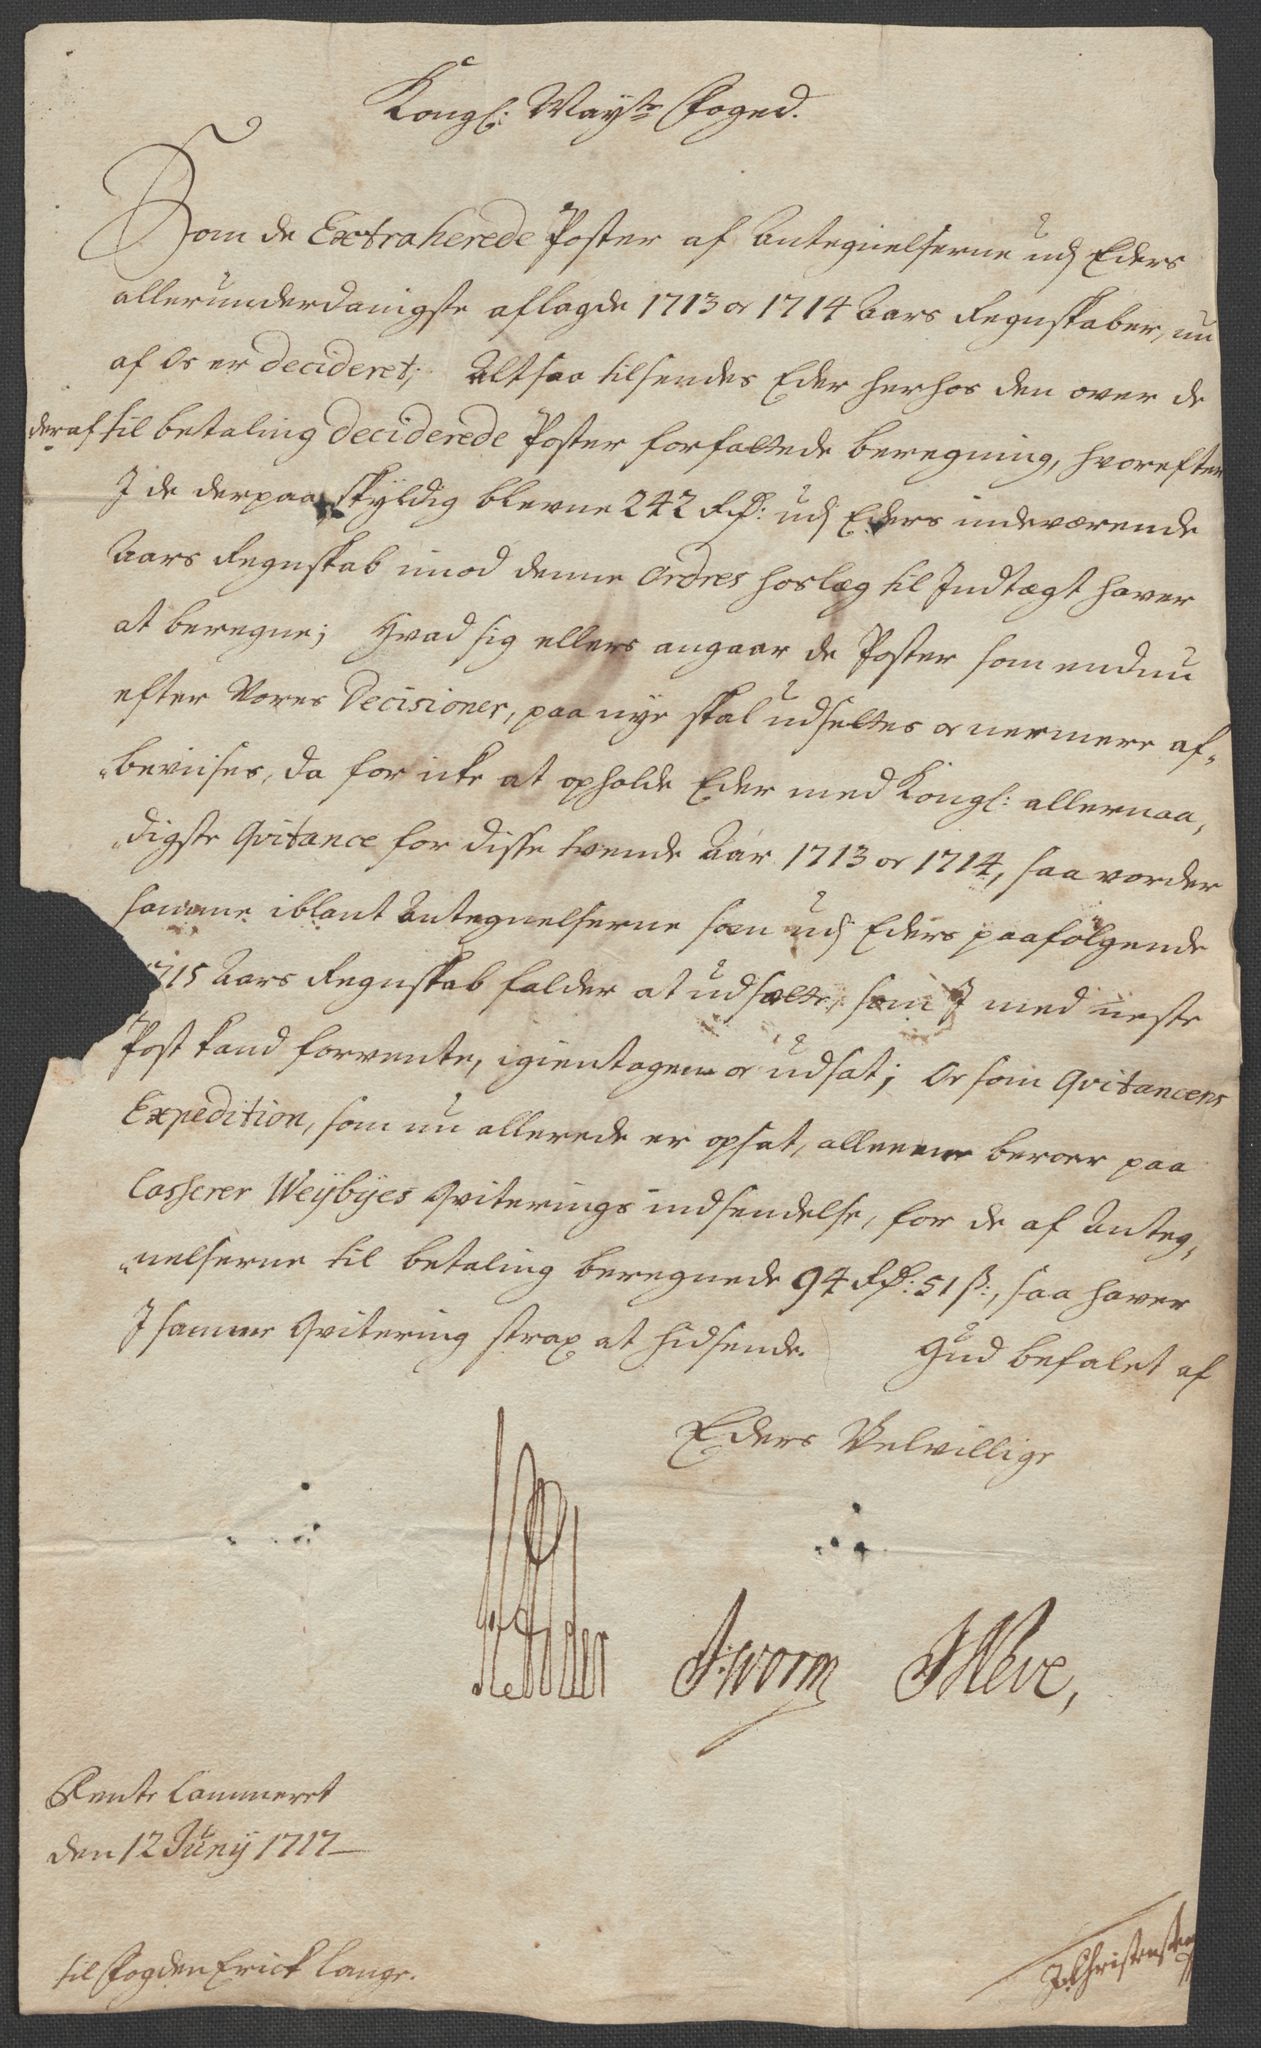 Kongl: Mayts Foged.
Som de Extraherede Poster af Antegnelserne udj Eders
allerunderdanigste aflagde 1713 og 1714 Aars Regnskaber, nu
af Os er decideret; Altsaa tilsendes Eder herhos den over de
deraf til betaling deciderede Poster forfattede beregning, hvorefter
I de derpaa skyldig blevne 242 Rdr: udj Eders indeværende
Aars Regnskab imod denne Ordres hoslæg til Indtægt haver
at beregne; Hvad sig ellers angaar de Poster som endnu
efter Vores Decisioner, paa nye skal udsettes og nermere af-
bevises, da for icke at opholde Eder med Kongl: allernaa-
digste Qvitance for disse tvende Aar 1713 og 1714, saa vorder
samme iblant Antegnelserne som udj Eders paafølgende
1715 Aars Regnskab falder at udsætte, som I med neste
Post kand forvente, igientagen og udsat; Og som Qvitancens
Expedition, som nu allerede er opsat, alleene beroer paa
Casserer Weÿbÿes Qviterings indsendelse, for de af Anteg-
nelserne til betaling beregnede 94 Rdr: 51 s:, saa haver
I samme Qvitering strax at hidsende. Gud befalet af
Eders Velvillige
JWorm
Rente Cammeret
den 12 Junÿ 1717
til Fogden Erick Lange.